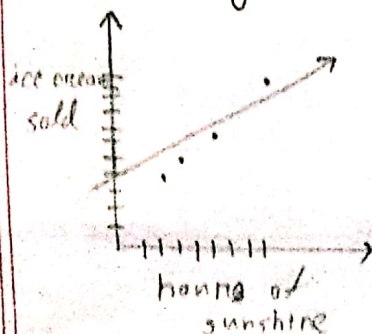 ice cream
sold
hours of
sunshine